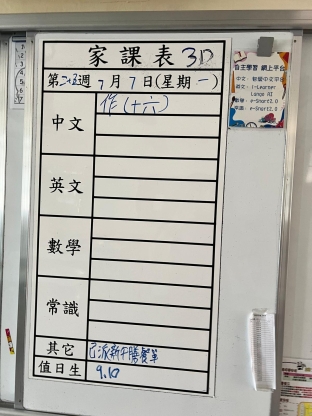 家課表 3D
第二十五週 7月7日(星期一)
中文 作(十六)
英文
數學
常識
其它 已派新下膳餐單
值日生 9.10
自主學習 網上平台
中文:
英文: i-Learner
Lango AI
數學: e-Smart2.0
常識: e-Smart2.0